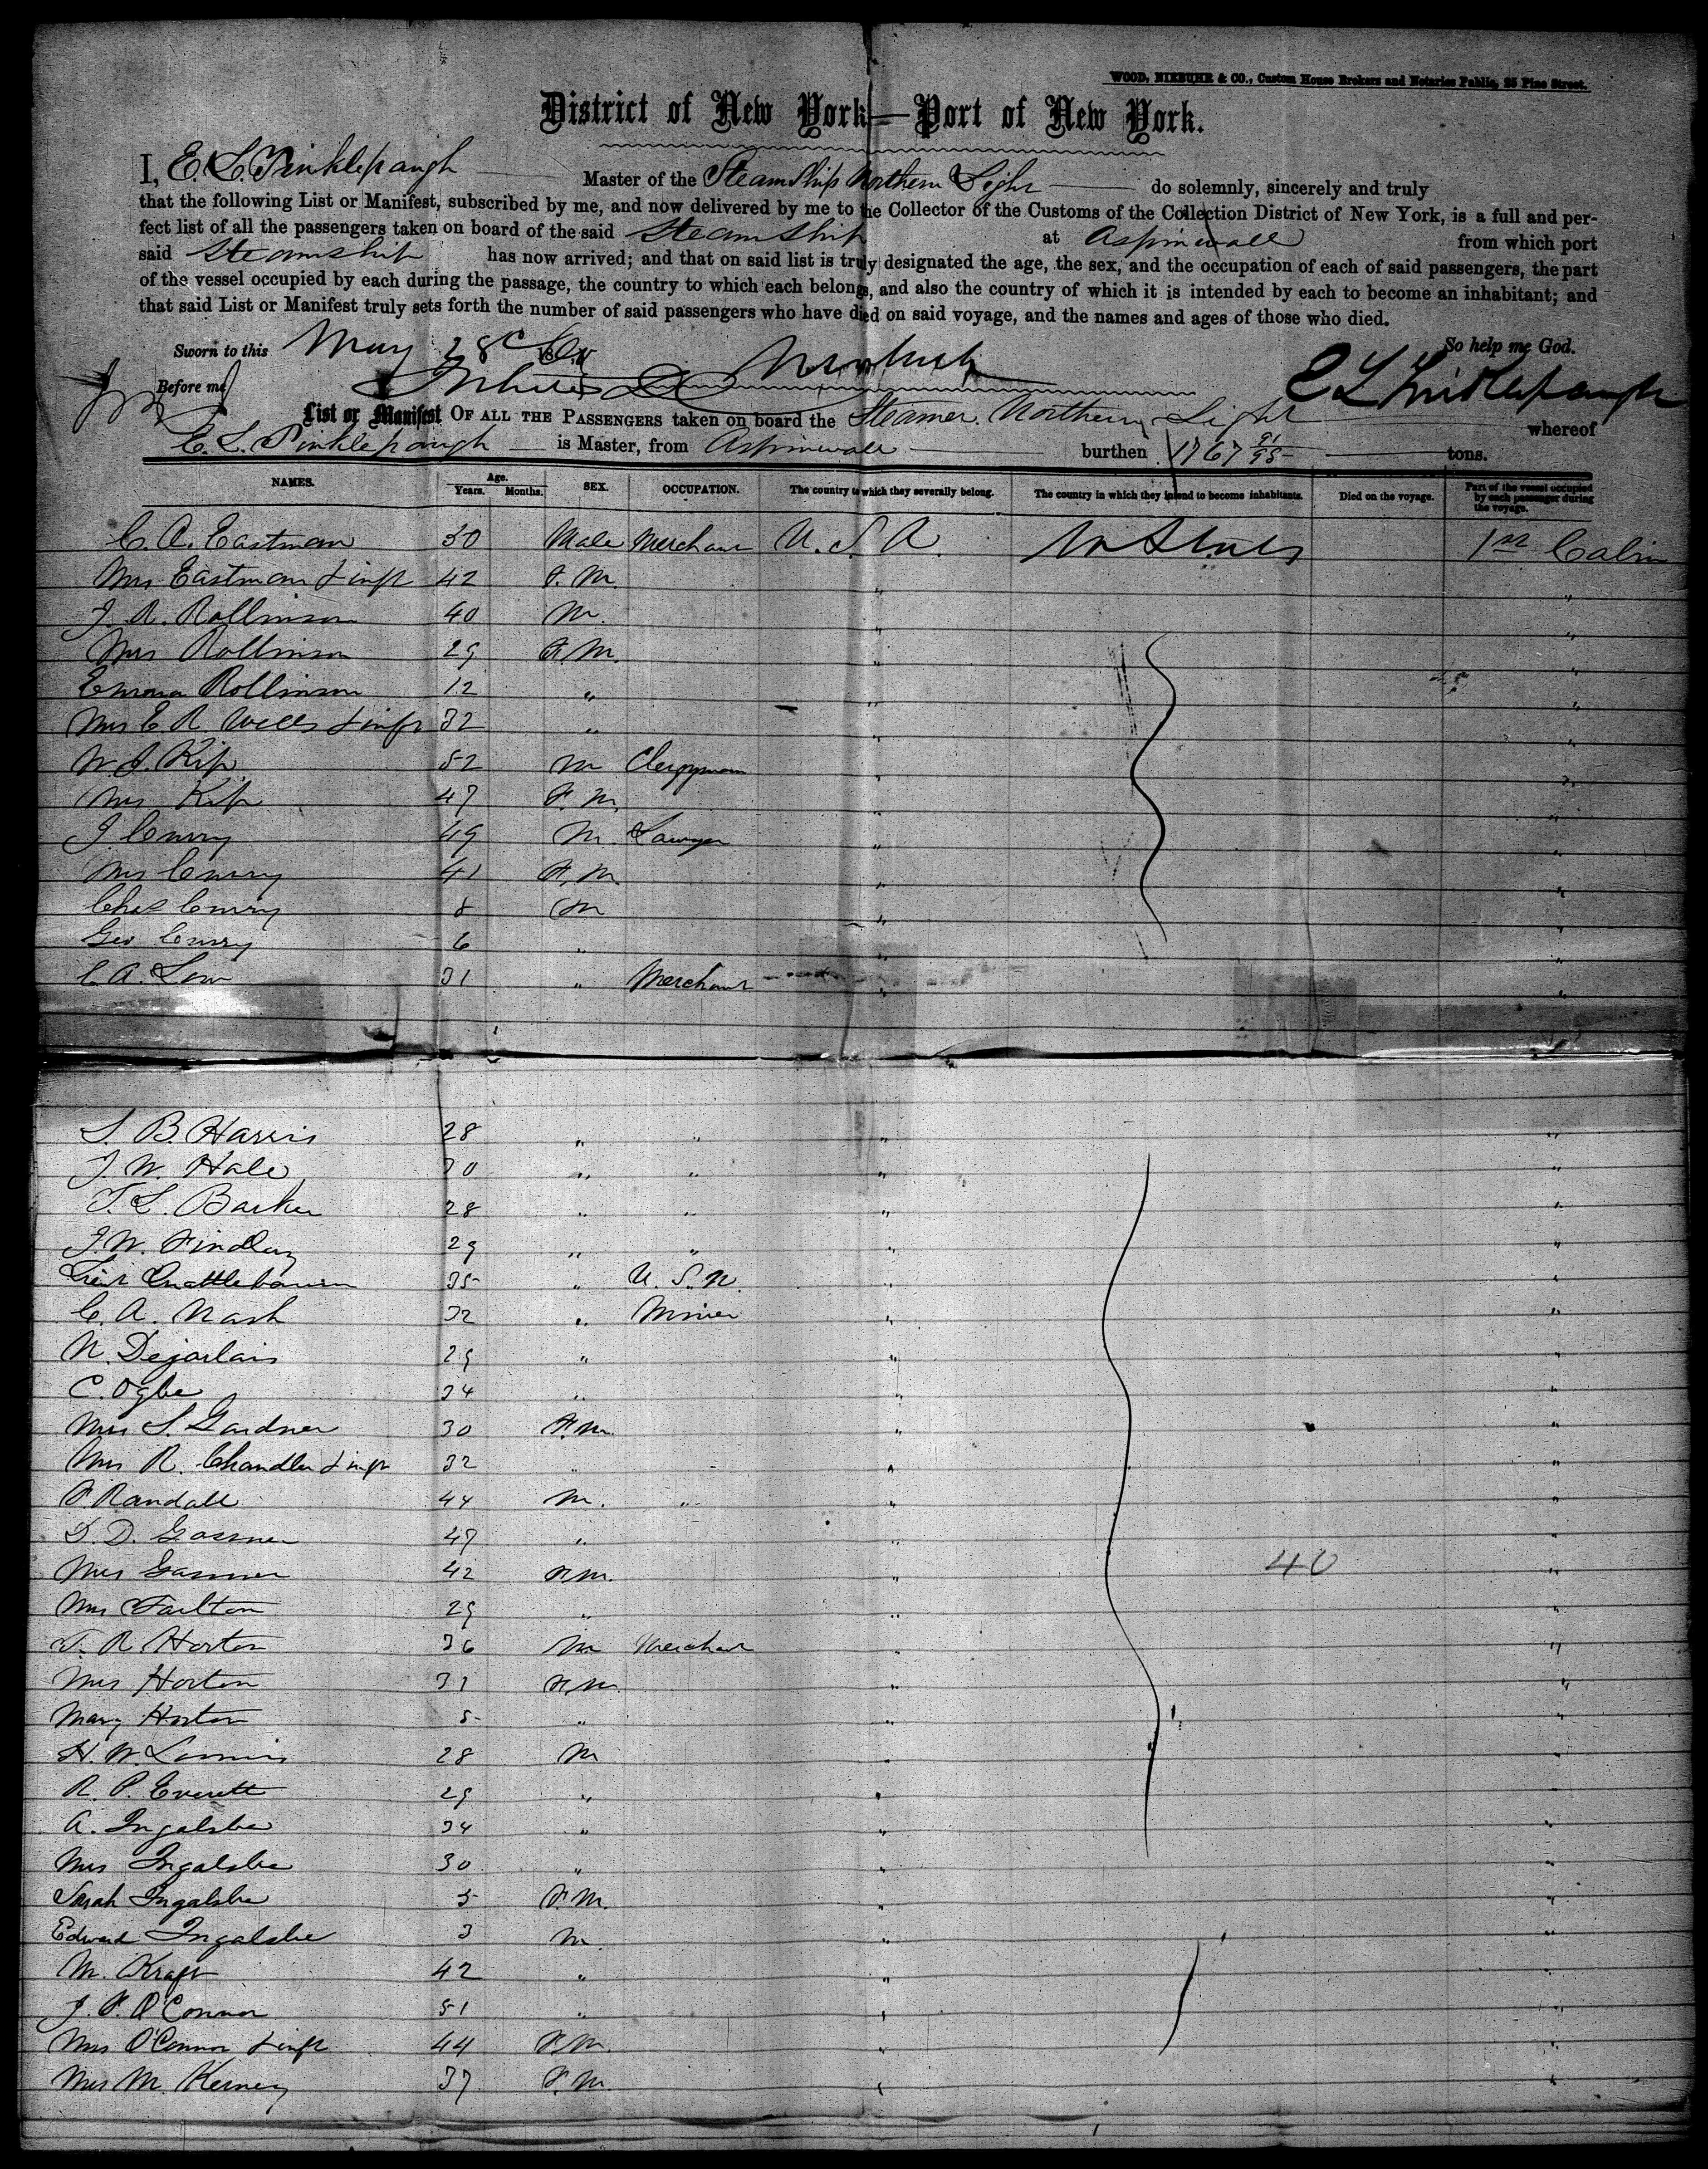 WOOD, NIEBUHR & CO., Custom House Brokers and Notaries Public, 25 Pine Street.
District of New York—Port of New York.
I, E. L. Tinklepaugh Master of the Steam Ship Northern Light do solemnly, sincerely and truly
that the following List or Manifest, subscribed by me, and now delivered by me to the Collector of the Customs of the Collection District of New York, is a full and per-
fect list of all the passengers taken on board of the said Steamship at Aspinwall from which port
said Steamship has now arrived; and that on said list is truly designated the age, the sex, and the occupation of each of said passengers, the part
of the vessel occupied by each during the passage, the country to which each belongs, and also the country of which it is intended by each to become an inhabitant; and
that said List or Manifest truly sets forth the number of said passengers who have died on said voyage, and the names and ages of those who died.
Sworn to this May 28 186 So help me God.
Before me E L Tinklepaugh
List or Manifest OF ALL THE PASSENGERS taken on board the Steamer Northern Light whereof
E. L. Tinklepaugh is Master, from Aspinwall burthen 1767 91/95 tons.
NAMES. Age. Years. Months. SEX. OCCUPATION. The country to which they severally belong. The country in which they intend to become inhabitants. Died on the voyage. Part of the vessel occupied by each passenger during the voyage.
C. A. Eastman 30 Male Merchant U. S. A. Un States 1st Cabin
Mrs Eastman & inft 42 F. M. " "
J. R. Rollinson 40 M. " "
Mrs Rollinson 29 F. M. " "
Emma Rollinson 12 " " "
Mrs C R Wells & inft 32 " " "
W. I. Kip 52 M Clergyman " "
Mrs Kip 47 F. M. " "
J. Curry 49 M. Lawyer " "
Mrs Curry 41 F. M. " "
Chas Curry 8 M " "
Geo Curry 6 " " "
C. A. Low 31 " Merchant " "
S. B. Harris 28 " " " "
J. W. Hale 30 " " " "
T. L. Barker 28 " " " "
J. W. Findlay 29 " " " "
Lieut Quattlebaum 35 " U. S. N. " "
C. A. Nash 32 " Miner " "
N. Dejarlais 29 " " "
C. Ogbe 34 " " "
Mrs S. Gardner 30 F. M. " "
Mrs R. Chandler & inft 32 " " "
P. Randall 44 M. " " "
D. D. Gassner 47 " " "
Mrs Gassner 42 F. M. " 40 "
Mrs Tarlton 29 " " "
T. R Horton 36 M Merchant " "
Mrs Horton 31 F. M. " "
Mary Horton 5 " " "
H. W. Loomis 28 M " "
R. P. Everett 29 " " "
A. Ingalsbe 34 " " "
Mrs Ingalsbe 30 " " "
Sarah Ingalsbe 5 F. M. " "
Edward Ingalsbe 3 M. " "
M. Kraft 42 " " "
J. P. O'Connor 51 " " "
Mrs O'Connor & inft 44 F. M. " "
Mrs M. Kerney 37 F. M. " "